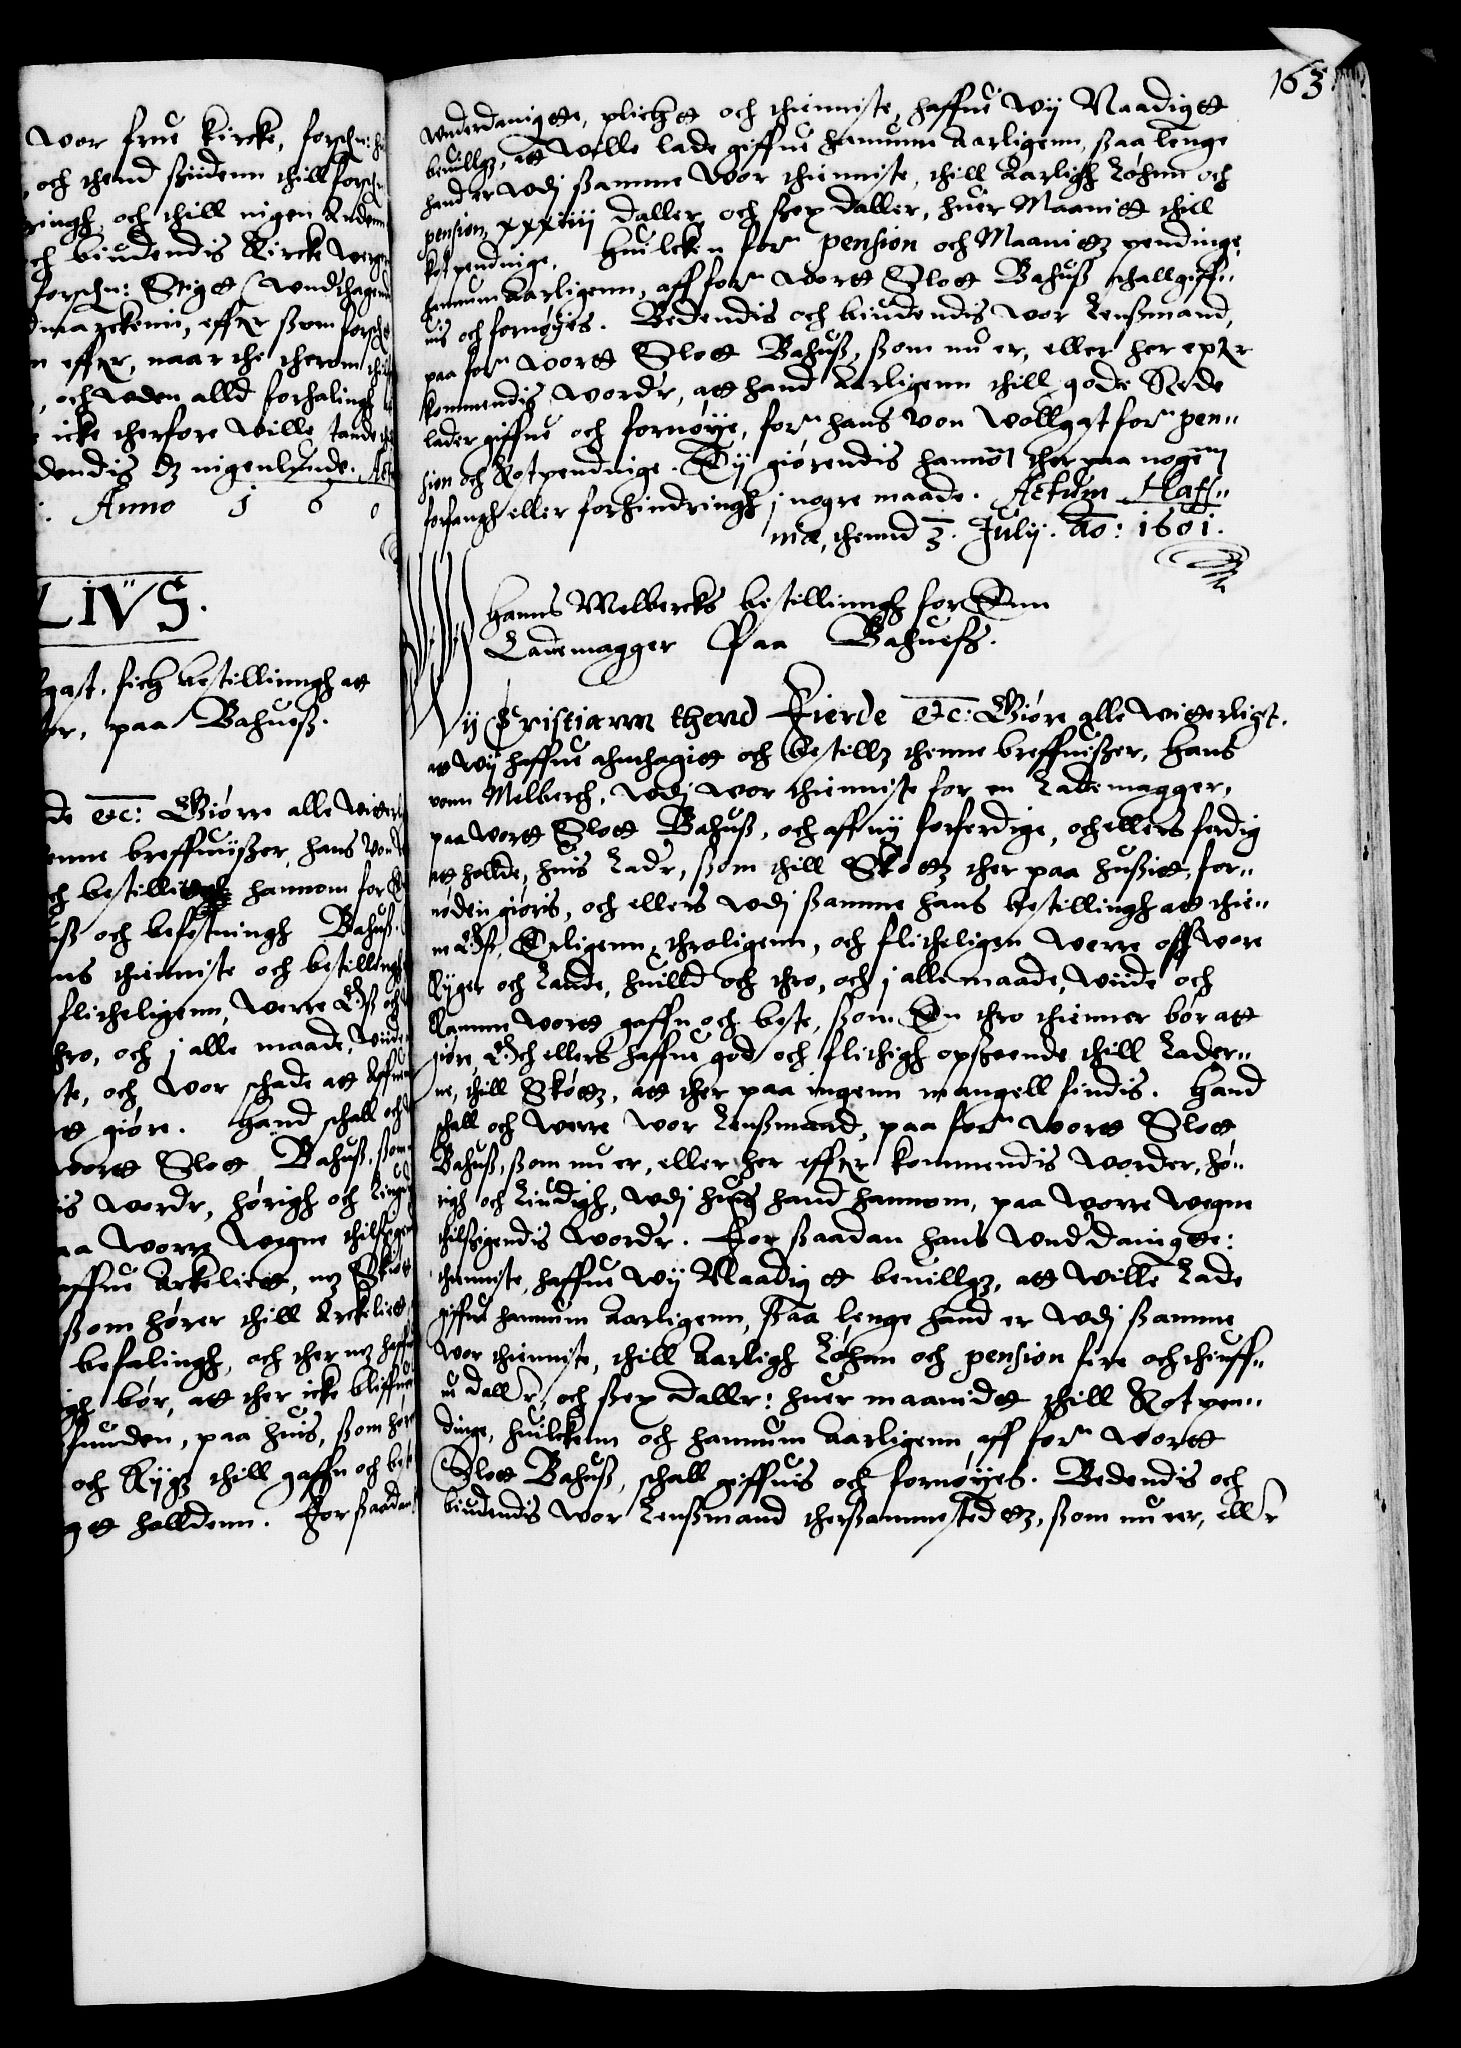 vor frue kircke, forschn: h
och thend siidenn thill forsch
ringh, och thill nigen Anden
ch biudendis Kircke verge
forschn: Stigtt Undthagend
dmarckenn, effter som forsch
n effter, naar the therom thil
, och uden alld forhalingh
icke therfore ville tande
dendis dz nigenlunde. Act
Anno 1 6 0
LIVS.
lgast. fich bestillinngh at
er, paa Bahueß.
de etc: Giørre alle witter
enne breffuiißer, hans von
ch bestillett hannom for
uß och befestningh Bahuß.
ns thienniste och bestillingh
flitheligenn, werre Oß och
thro, och j alle maade, viide
ste, och vor schade att affue
tt giøre. Hand schall och
vortt Slott Bahuß, som
is vordr, hørigh och Lingd
aa worre vegne thilsigen
affue Arkeliett, mz Skiøt
som hører thill Arkeliett
befalingh, och ther mz haff
igh bør, att ther icke bliffue
funden, paa huis, som hør
och Rygz thill gaffn och bes
gtt holldenn. For saadan
163
underdanigste, plichtt och thienniste, haffue wy Naadigtt
beuillgz, att ville lade giffue hannum Aarligenn, saa lenge
hand er udj samme vor thienniste, thill Aarligh Løhnn och
pension, xxxiiij daller, och sex daller, huer Maanitt thill
kostpendinge. Huilcken forn pension och Maanitz pendinge
hannum Aarligenn, aff forn vortt Slott Bahuß schall giff„
uis och fornøyes. Bedendis och biudendis vor Lenßmand,
paa forn vortt Slott Bahuß, som nu er, eller her epter
kommendis vordr, att hand Aarligenn thill gode Rede
lader giffue och fornøye, forn hans von Wollgast forn pen„
sion och Kostpendinge. Ey giørendis hannom ther paa nogen
forfangh eller forhindringh j nogre maade. Actum Haff„
niæ, thennd 3. July. Ao: 1601.
Hanns Melbercks bestillinngh for Enn
Lademagger Paa Bahueß.
Wij Christiann thend Fierde etc: Giøre alle witterligt.
att wy haffue anthagitt och bestillz thenne breffuißer, Hans
vonn Melberch, udj vor thienniste for en Lademagger,
paa vortt Slott Bahuß, och aff ny forferdige, och ellers ferdig
att hollde, huis Ladr, som thill Skøttz ther paa hußitt, for„
nøden giøris, och ellers udj samme hans bestillingh att thie„
ne Oß, Erligenn, throligenn, och flitheligen werre off vore
Ryger och Lande, huilld och thro, och j alle maade, viide och
Ramme vortt gaffn och beste, som En thro thienner bør att
giøre, Och ellers haffue god och flithigh opseende thill Lader„
ne, thill Skøttz, att ther paa ingenn mangell findis. Hand
schall och werre vor Lenßmand, paa forn vortt Slott
Bahuß, som nu er, eller her effter kommendis vorder, hø„
righ och Liudigh, udj huis hand hannom, paa vorre vegne
thilsigendis vordr. For saadan hans Unddanigste:
thienniste, haffue wy Naadigtt beuillgz, att wille Lade
giffue hannum Aarligenn, saa lenge hand er udj samme
vor thienniste, thill Aarligh Løhan och pension fire och thiuff„
ue dallr, och sex dallr: huer maanidtt thill Kost pen„
dinge, huilckenn och hannum Aarligenn aff forn vortt
Slott Bahuß, schall giffuis och fornøyes. Bedendis och
biudendis vor Lenßmand thersammestedtz, som nu er, ellr